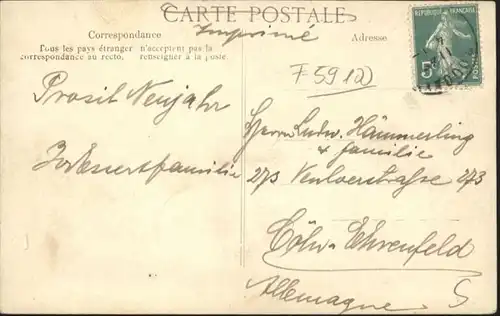 CARTE POSTALE
Imprimé
Correspondance
Adresse
Tous les pays étranger n'acceptent pas la
correspondance au recto. renseigner à la poste.
RÉPUBLIQUE FRANÇAISE
5c
POSTES
F 5912)
Prosit Neujahr
Herrn Ludw. Hämmerling
& familie
273 Venloerstraße 273
Cöln-Ehrenfeld
Allemagne